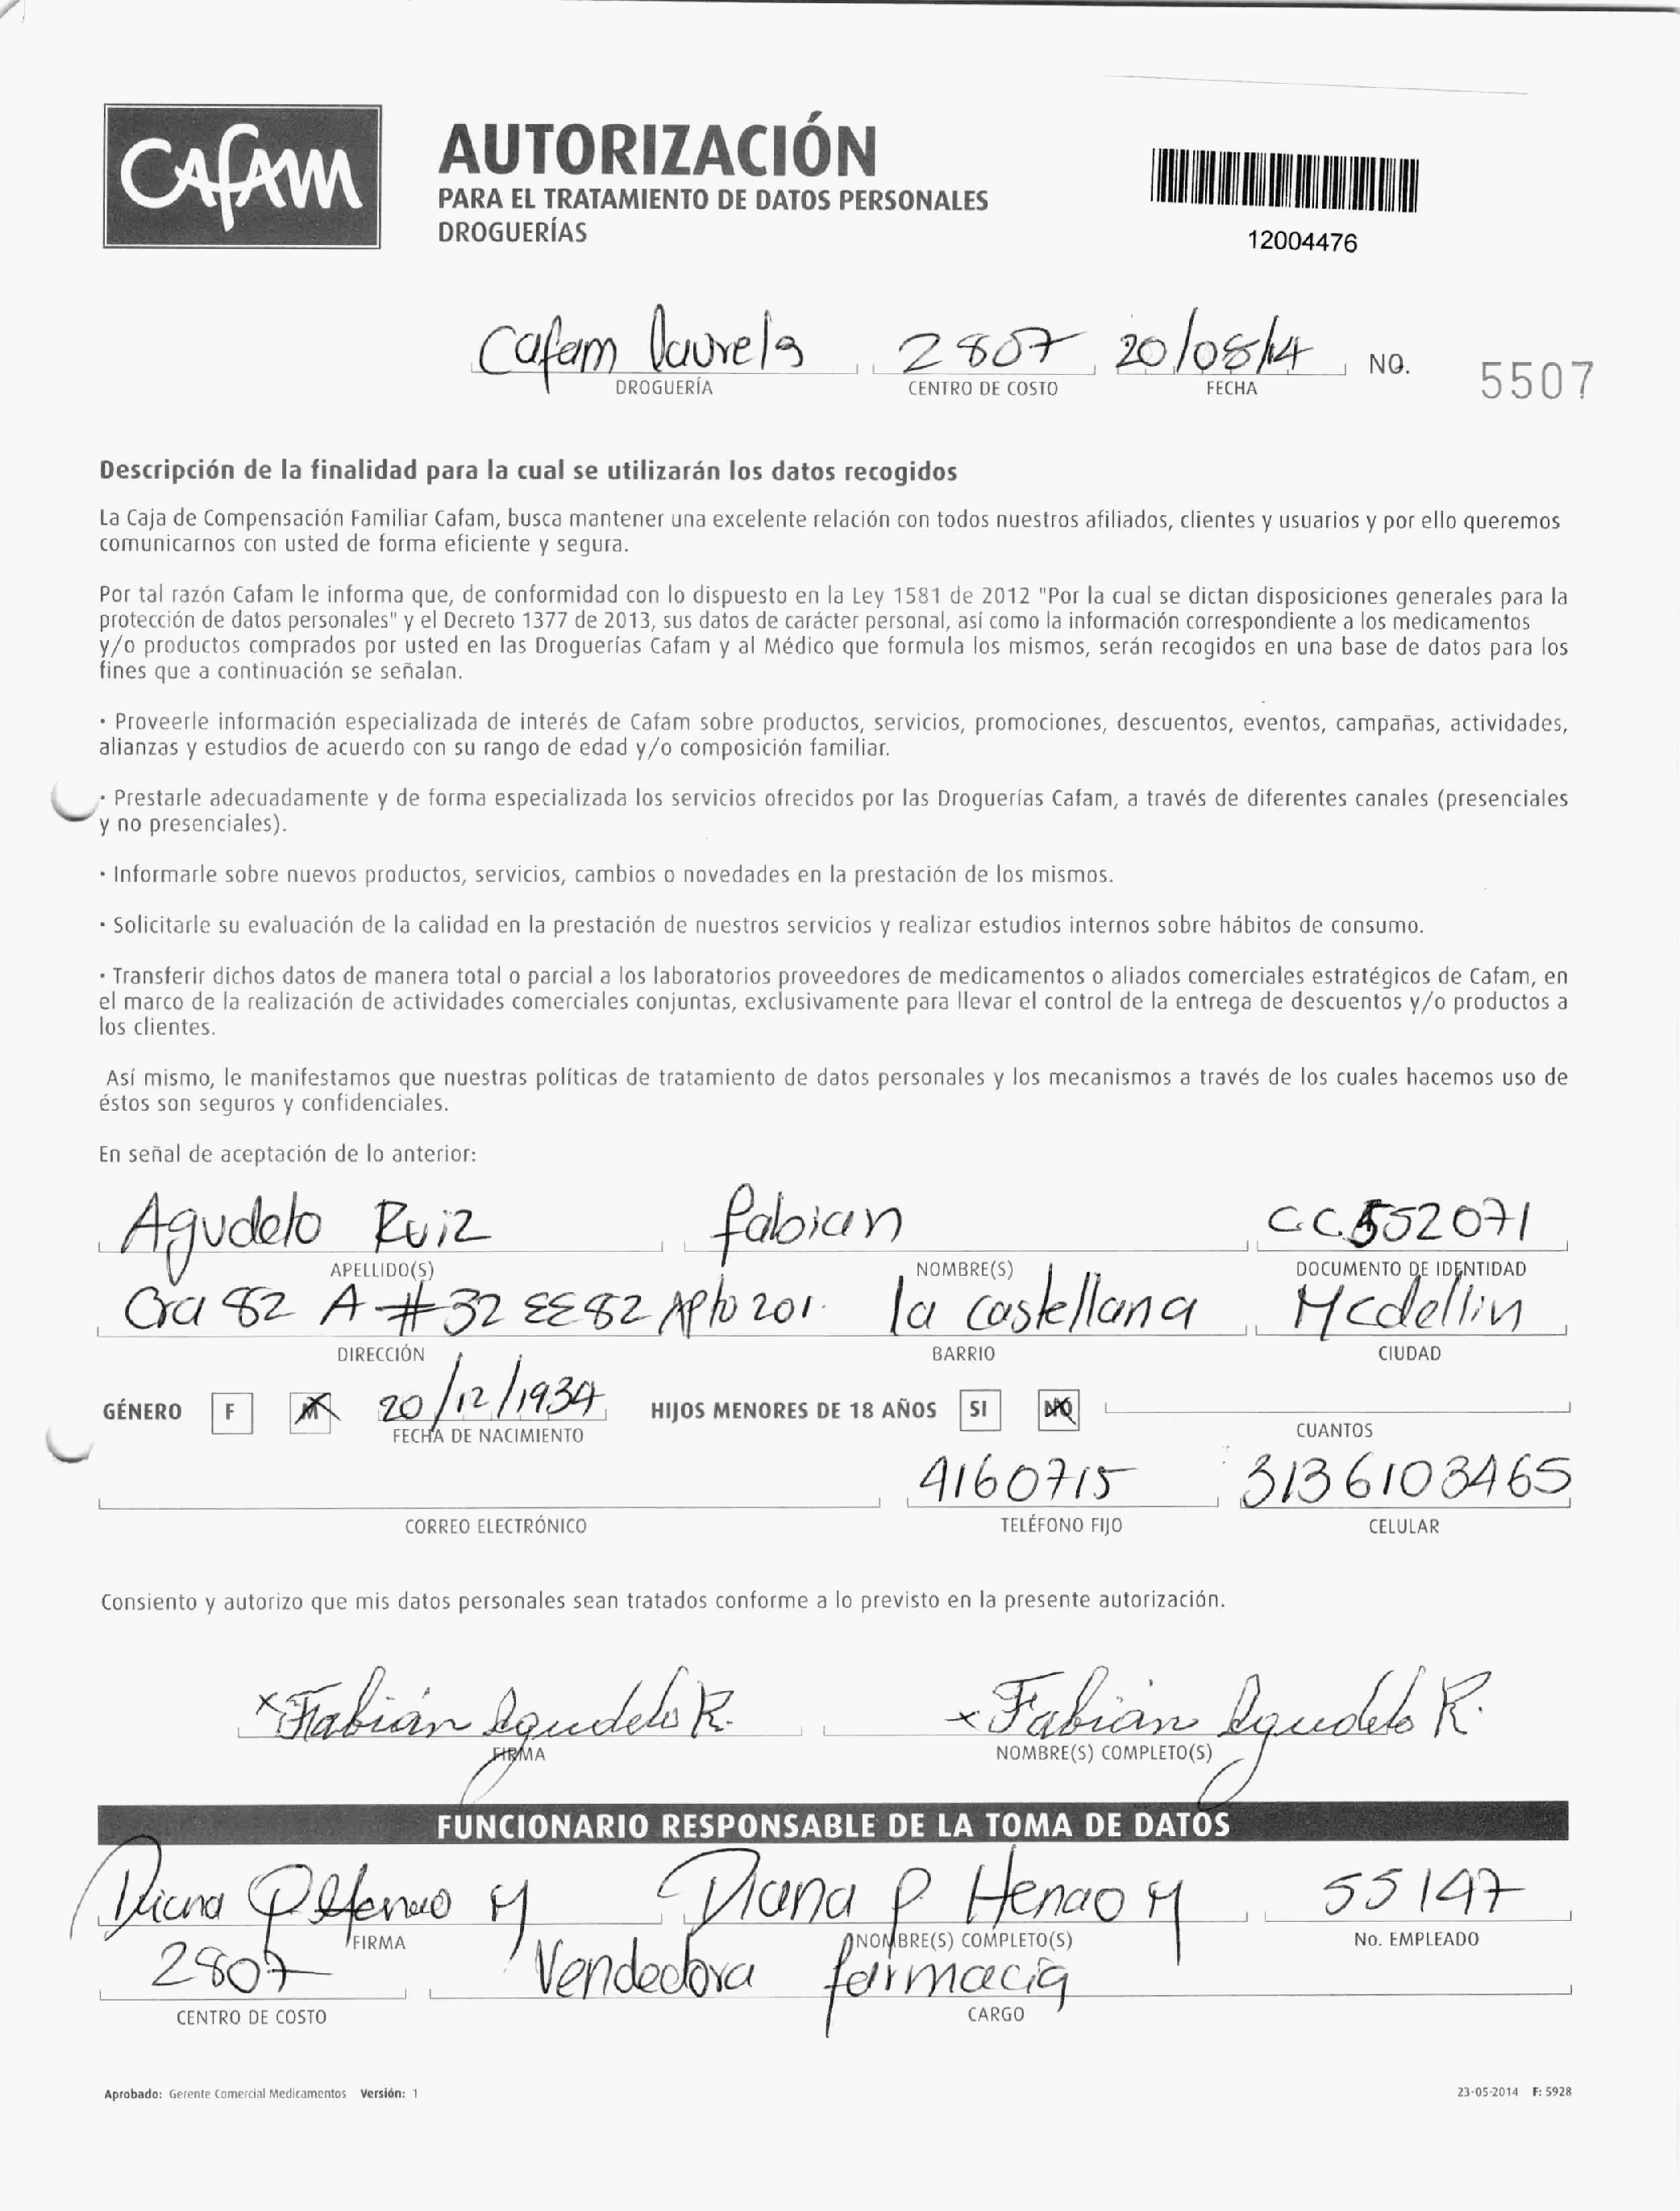 CAFAM
AUTORIZACIÓN
PARA EL TRATAMIENTO DE DATOS PERSONALES
DROGUERÍAS
12004476
Cafam laurels 2807 20/08/14 NO. 5507
DROGUERÍA CENTRO DE COSTO FECHA
Descripción de la finalidad para la cual se utilizarán los datos recogidos
La Caja de Compensación Familiar Cafam, busca mantener una excelente relación con todos nuestros afiliados, clientes y usuarios y por ello queremos
comunicarnos con usted de forma eficiente y segura.
Por tal razón Cafam le informa que, de conformidad con lo dispuesto en la Ley 1581 de 2012 "Por la cual se dictan disposiciones generales para la
protección de datos personales" y el Decreto 1377 de 2013, sus datos de carácter personal, así como la información correspondiente a los medicamentos
y/o productos comprados por usted en las Droguerías Cafam y al Médico que formula los mismos, serán recogidos en una base de datos para los
fines que a continuación se señalan.
· Proveerle información especializada de interés de Cafam sobre productos, servicios, promociones, descuentos, eventos, campañas, actividades,
alianzas y estudios de acuerdo con su rango de edad y/o composición familiar.
· Prestarle adecuadamente y de forma especializada los servicios ofrecidos por las Droguerías Cafam, a través de diferentes canales (presenciales
y no presenciales).
· Informarle sobre nuevos productos, servicios, cambios o novedades en la prestación de los mismos.
· Solicitarle su evaluación de la calidad en la prestación de nuestros servicios y realizar estudios internos sobre hábitos de consumo.
· Transferir dichos datos de manera total o parcial a los laboratorios proveedores de medicamentos o aliados comerciales estratégicos de Cafam, en
el marco de la realización de actividades comerciales conjuntas, exclusivamente para llevar el control de la entrega de descuentos y/o productos a
los clientes.
Así mismo, le manifestamos que nuestras políticas de tratamiento de datos personales y los mecanismos a través de los cuales hacemos uso de
éstos son seguros y confidenciales.
En señal de aceptación de lo anterior:
Agudelo Ruiz fabian C.C. 552071
APELLIDO(S) NOMBRE(S) DOCUMENTO DE IDENTIDAD
Cra 82 A # 32 EE 82 Apto 201. la castellana Medellin
DIRECCIÓN BARRIO CIUDAD
GÉNERO F M 20/12/1934 HIJOS MENORES DE 18 AÑOS SI NO
FECHA DE NACIMIENTO CUANTOS
4160715 3136103465
CORREO ELECTRÓNICO TELÉFONO FIJO CELULAR
Consiento y autorizo que mis datos personales sean tratados conforme a lo previsto en la presente autorización.
x Fabián Agudelo R. x Fabián Agudelo R.
FIRMA NOMBRE(S) COMPLETO(S)
FUNCIONARIO RESPONSABLE DE LA TOMA DE DATOS
Diana P Henao M Diana P Henao M 55147
FIRMA NOMBRE(S) COMPLETO(S) No. EMPLEADO
2807 Vendedora farmacia
CENTRO DE COSTO CARGO
Aprobado: Gerente Comercial Medicamentos Versión: 1 23-05-2014 F: 5928